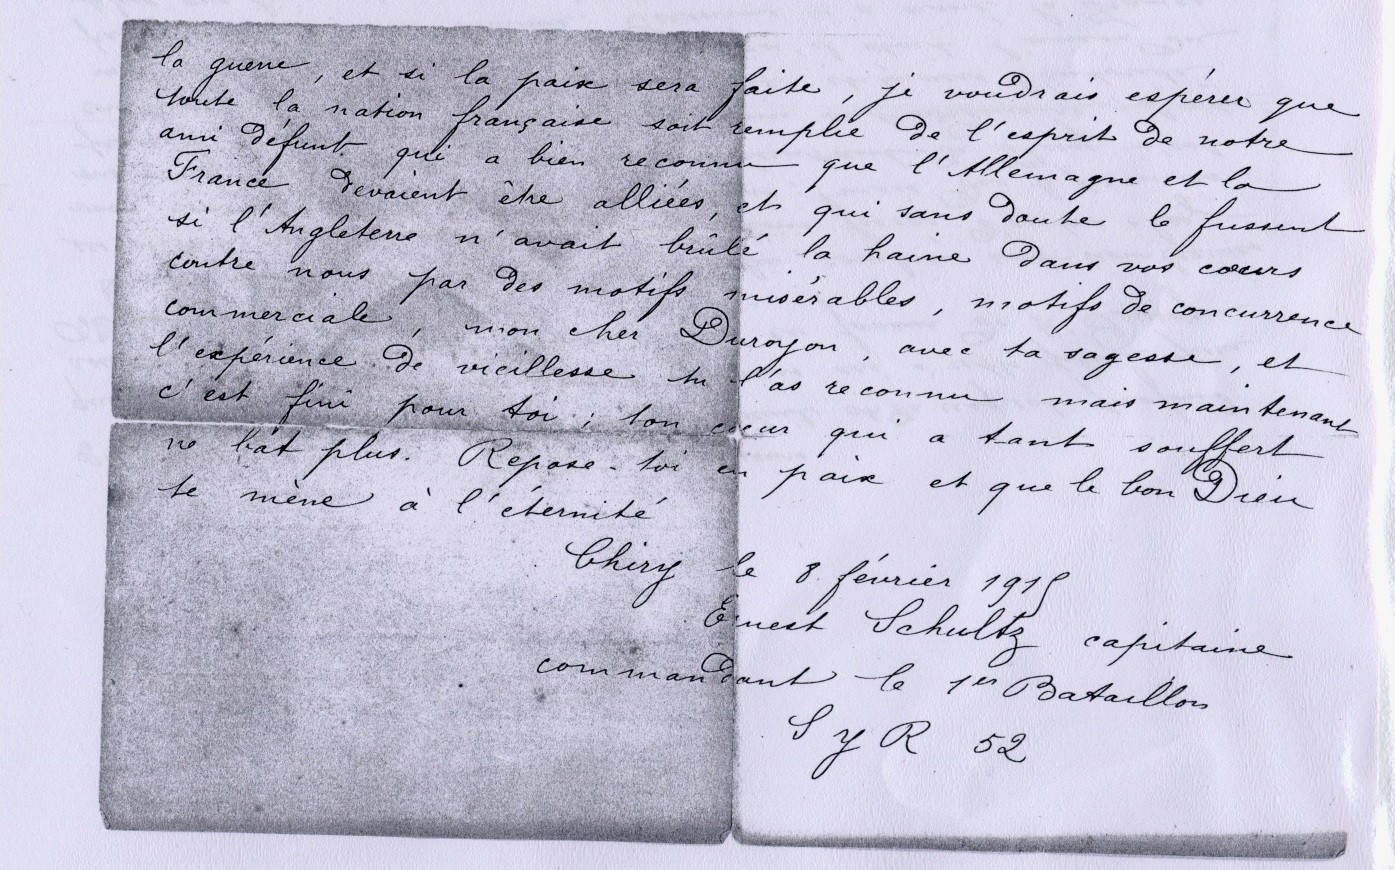 la guerre, et si la paix sera faite, je voudrais espérer que
toute la nation française soit remplie de l'esprit de notre
ami défunt qui a bien reconnu que l'Allemagne et la
France devaient être alliées, et qui sans doute le fussent
si l'Angleterre n'avait brûlé la haine dans vos cœurs
contre nous par des motifs misérables, motifs de concurrence
commerciale, mon cher Duroyon, avec ta sagesse, et
l'expérience de vieillesse tu l'as reconnu mais maintenant
c'est fini pour toi; ton cœur qui a tant souffert
ne bat plus. Repose-toi en paix et que le bon Dieu
te mène à l'éternité
Chiry le 8 février 1915
Ernest Schultz capitaine
commandant le 1er Bataillon
S y R 52